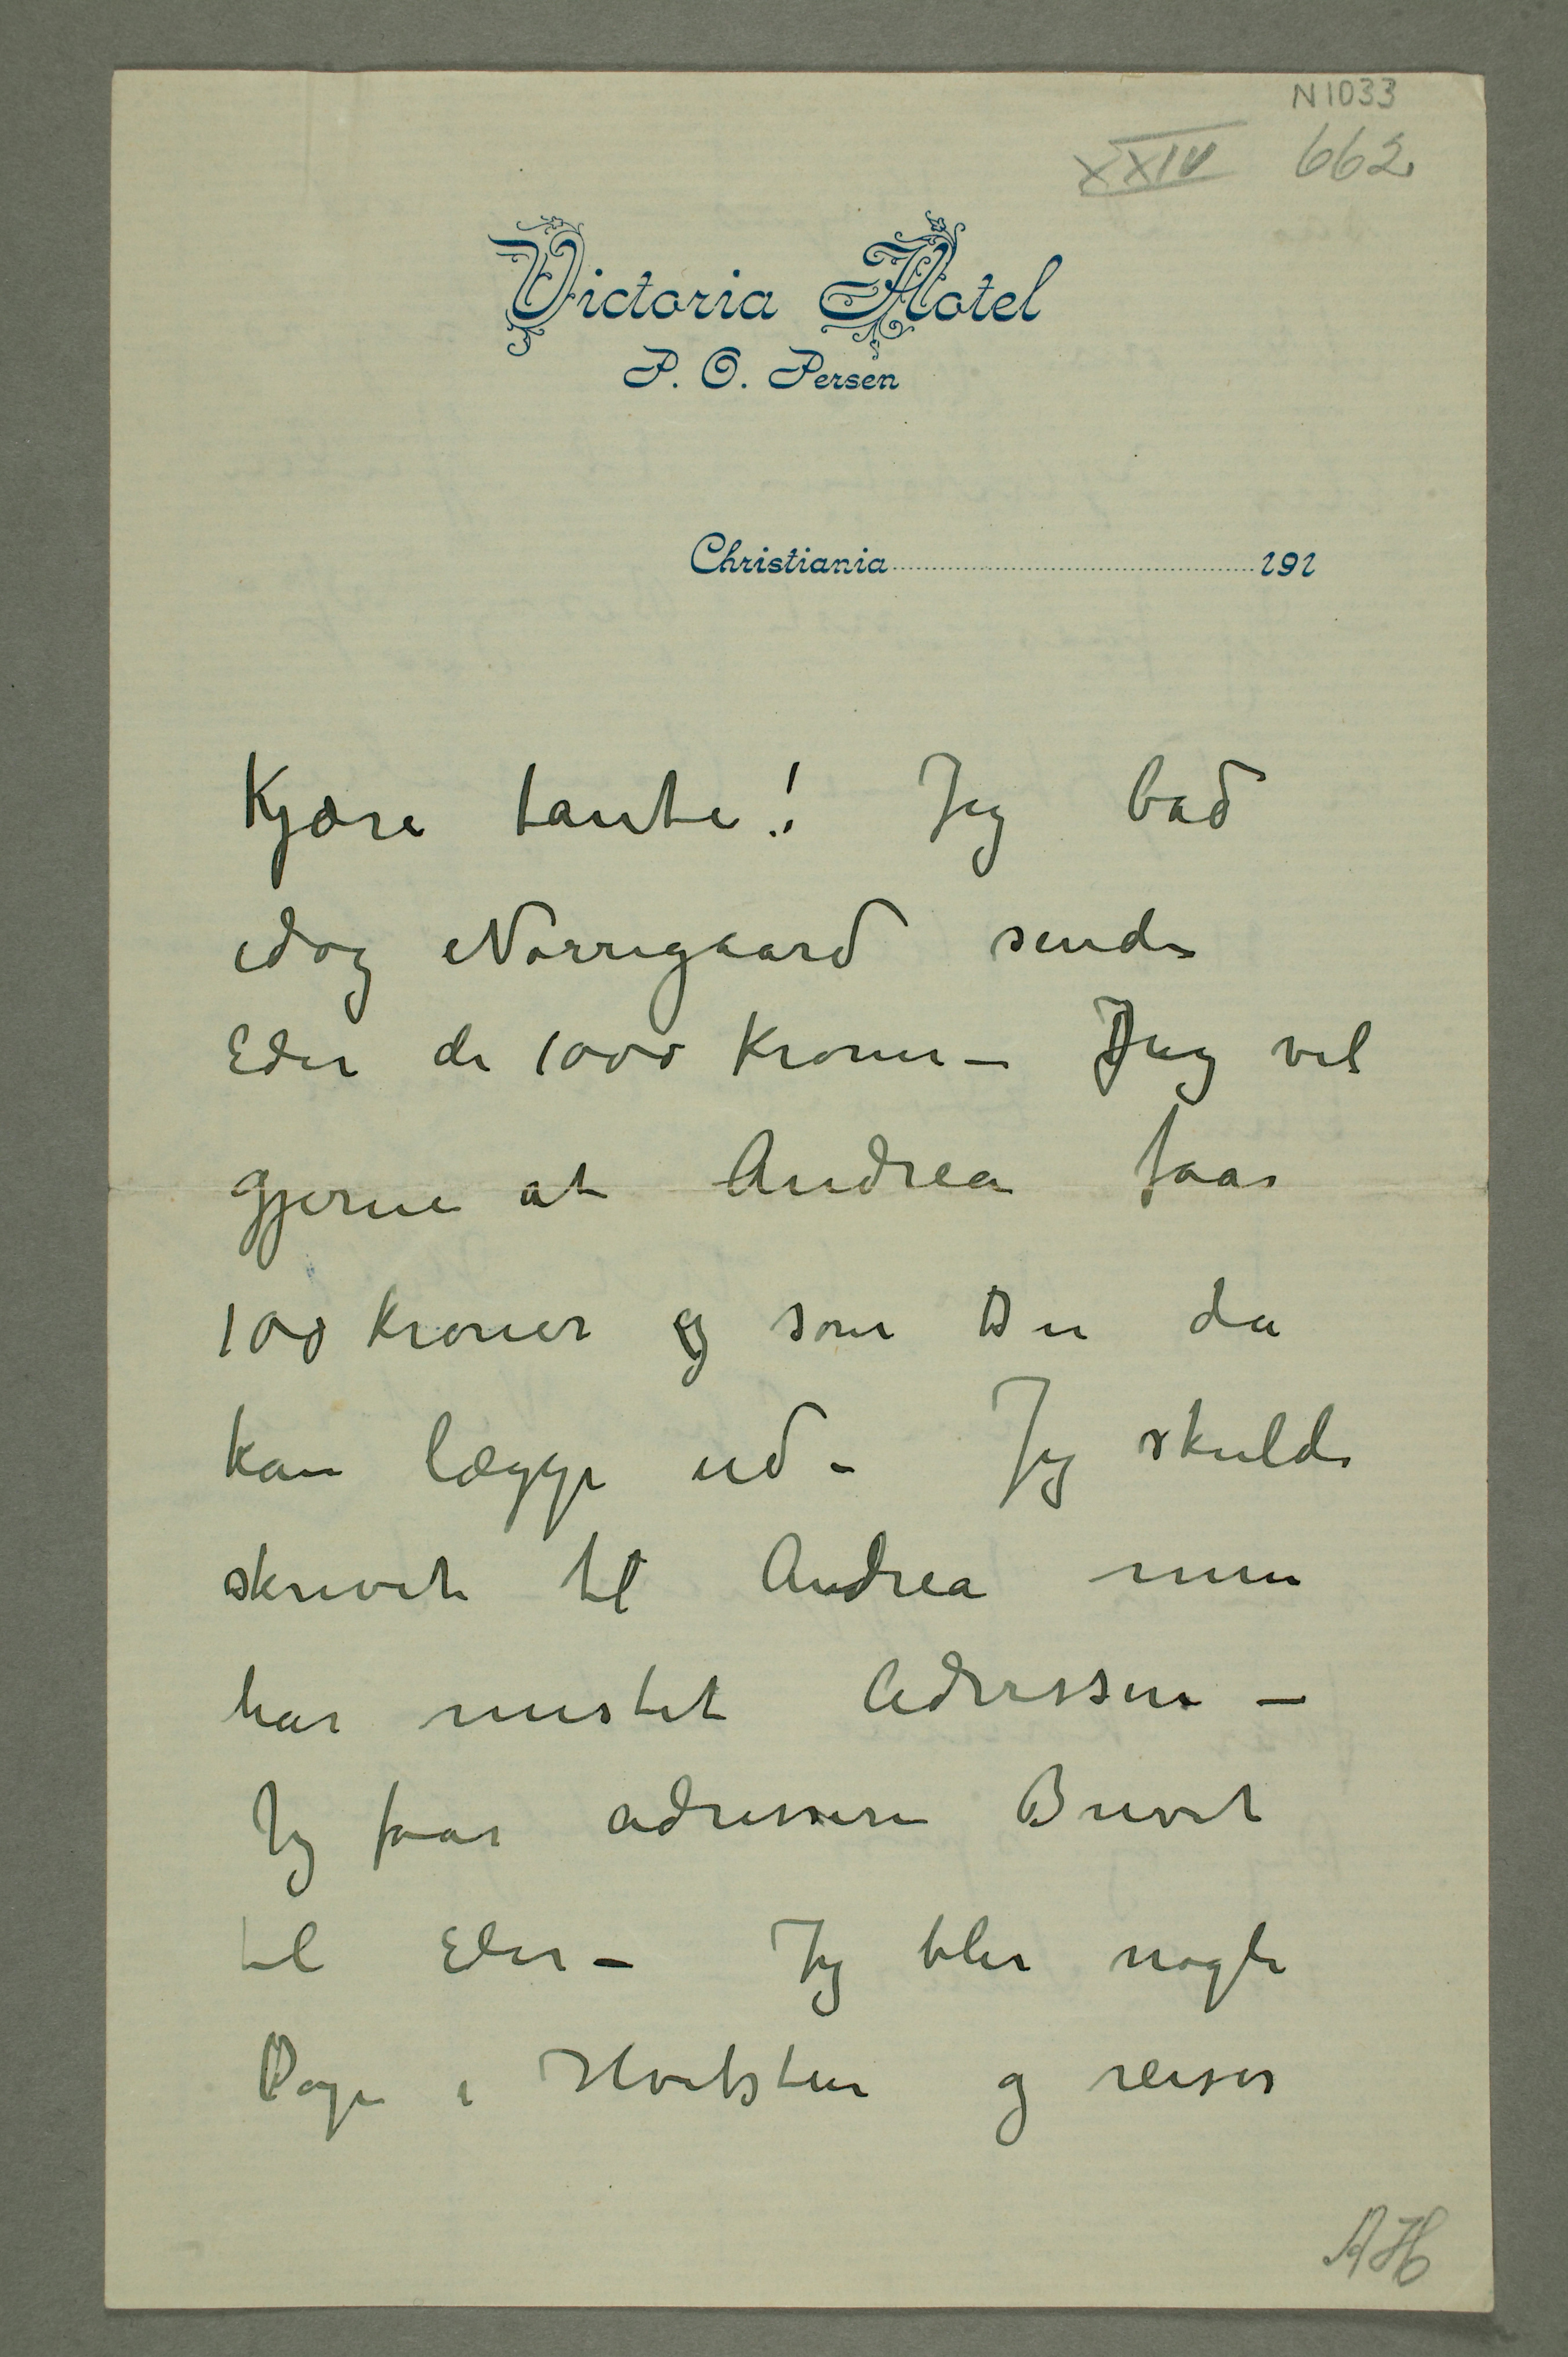 N1033
XXIV 662
Victoria Hotel
P. O. Persen
Christiania 191
Kjære tante! Jeg bad
idag Nørregaard sende
Eder de 1000 Kroner – Jeg vil
gjerne at Andrea faar
100 kroner og som Du da
kan lægge ud – Jeg skulde
skrevet til Andrea men
har mistet Adressen –
Jeg faar adressere Brevet
til Eder – Jeg blir nogle
Dage i Hvitsten og reiser
AH